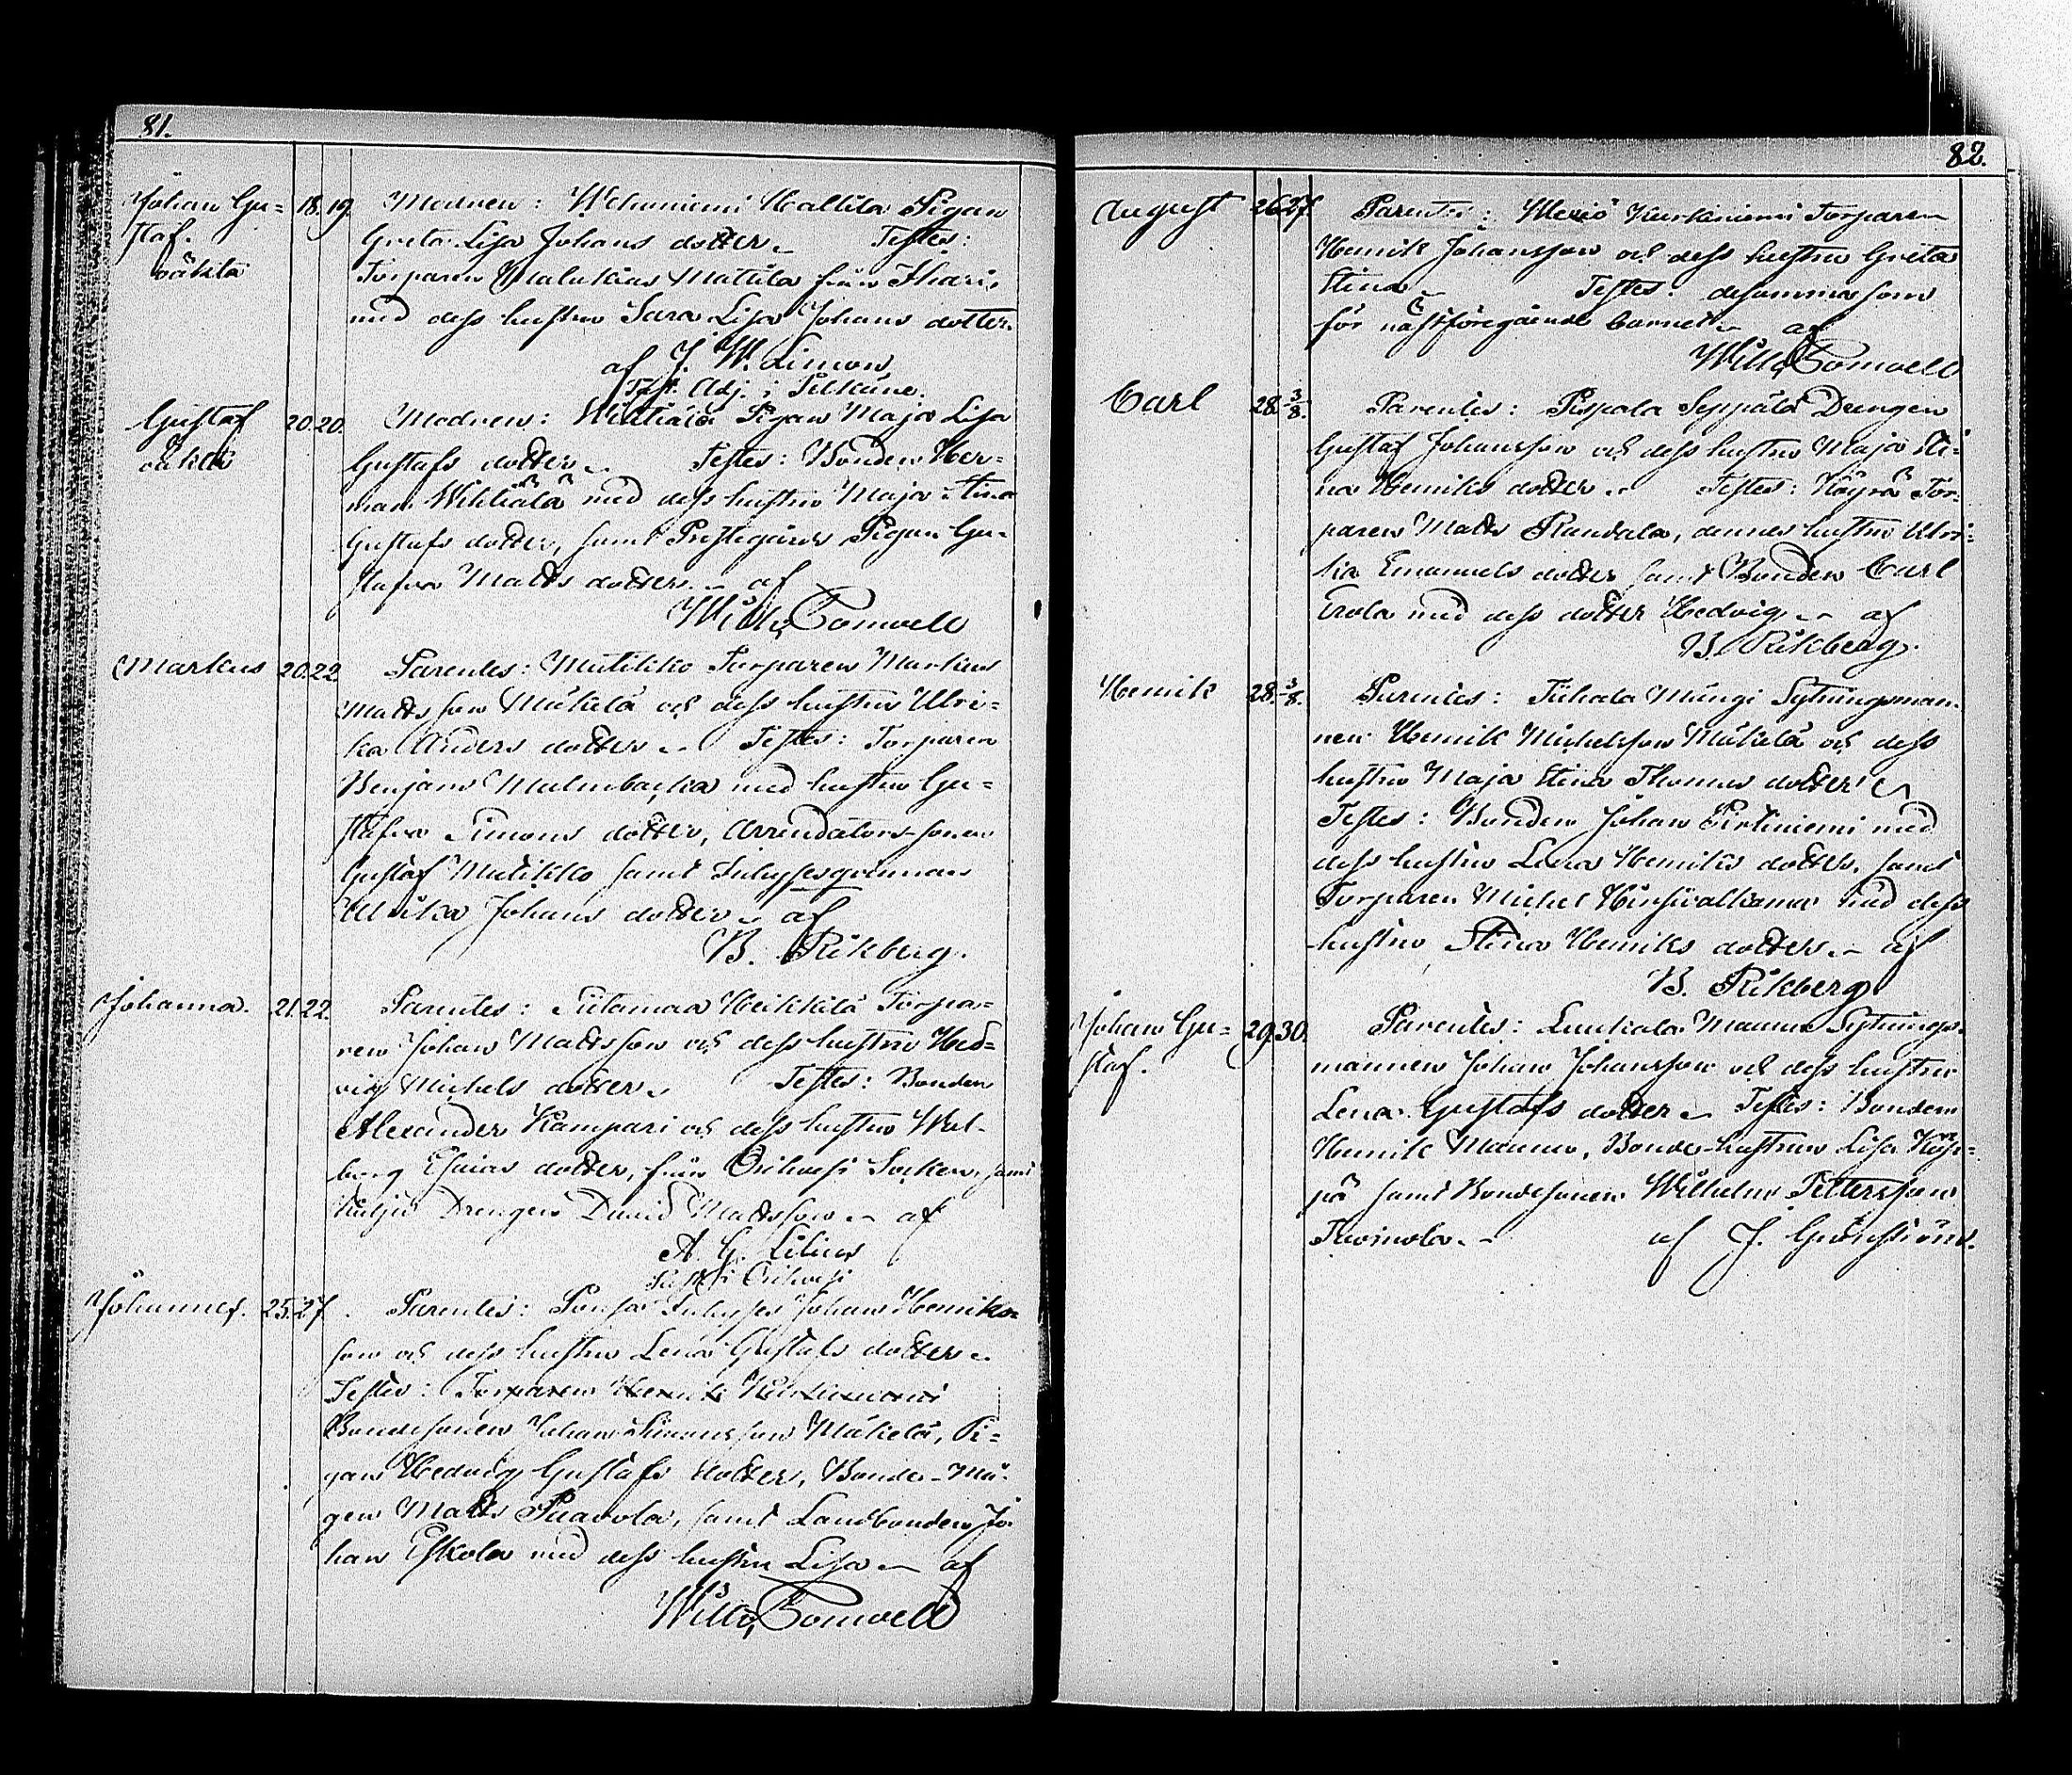 81.
Johan Gu= 18. 19. Modren: Wehaniemi Kallila Pigan
staf. Greta Lisa Johans dotter. Testes:
oäkta Torparen Malakias Mattila från Ihari,
med dess hustru Sara Lisa Johans dotter.
af J. W. Limon
Adj. i Pelkäne.
Gustaf 20. 20. Modren: Wihtiälä Pigan Maja Lisa
oäkta Gustafs dotter. Testes: Bonden Her=
man Wihtiälä med dess hustru Maja Stina
Gustafs dotter, samt Prestegårds Pigan Gu=
stafva Matts dotter. af
Willh. Comvell
Markus 20. 22. Parentes: Mutikko Torparen Markus
Matts son Mäkelä och dess hustru Ulri=
ka Anders dotter. Testes: Torparen
Benjam Malmbacka med hustru Gu=
stafva Simons dotter, Arrendators-sonen
Gustaf Mutikko samt Inhyseqvinnan
Ulrika Johans dotter. af
B. Rikberg.
Johanna. 21. 22. Parentes: Siitamaa Heikkilä Torpa=
ren Johan Mattsson och dess hustru Hed=
vig Michels dotter. Testes: Bonden
Alexander Kampari och dess hustru Wal=
borg Esaias dotter, från Orihvesi Socken, samt
Drengen David Mattsson. af
A. G. Lilius
i Orihvesi
Johannes. 25. 27. Parentes: Ponsa Inhyses Johan Henriks=
son och dess hustru Lena Gustafs dotter.
Testes: Torparen Henrik Kurkiniemi
Bondesonen Johan Simonsson Mäkelä, Pi=
gan Hedvig Gustafs dotter, Bonde-Må=
gen Matts Puavola, samt Landbonden Jo=
han Eskola med dess hustru Lisa. af
Willh. Comvell
82.
August 26. 27. Parentes: Kurkiniemi Torparen
Henrik Johansson och dess hustru Greta
Stina. Testes: desamma som
för nästföregående barnet. af
Willh. Comvell
Carl 28. 3/8. Parentes: Pispala Seppälä Drengen
Gustaf Johansson och dess hustru Maja Sti=
na Henriks dotter. Testes: Köyrä Tor=
paren Matts Randala, dennes hustru Ulri=
ka Emanuels dotter samt Bonden Carl
Erola med dess dotter Hedvig. af
B. Rikberg.
Henrik 28. 3/8. Parentes: Tiihala Mangi Sytningsman=
nen Henrik Michelsson Mäkelä och dess
hustru Maja Stina Thomas dotter
Testes: Bonden Johan Pirttiniemi med
dess hustru Lena Henriks dotter, samt
Torparen Michel Hirsivalkama med dess
hustru Stina Henriks dotter. af
B. Rikberg
Johan Gu= 29. 30. Parentes: Liuksala Maunu Sytnings=
staf. mannen Johan Johansson och dess hustru
Lena Gustafs dotter. Testes: Bonden
Henrik Maunu, Bonde-hustrun Lisa Köp=
pä samt Bondesonen Wilhelm Pettersson
Thomola. af J. Grönström.